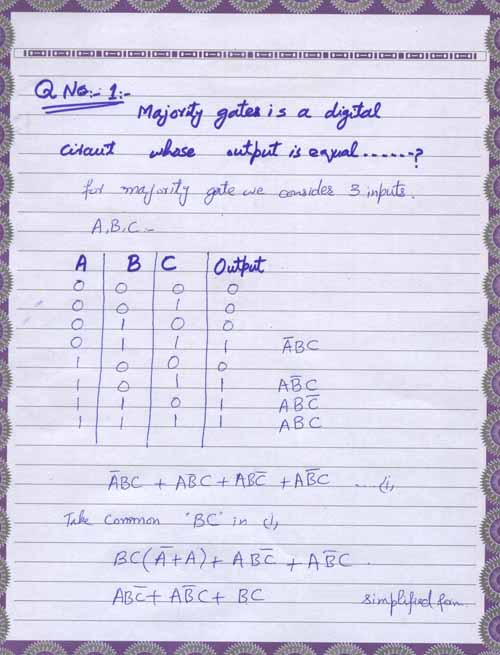 Q No:- 1:-
Majority gates is a digital
circuit whose output is equal......?
for majority gate we consider 3 inputs.
A,B,C -
A B C Output
0 0 0 0
0 0 1 0
0 1 0 0
0 1 1 1 A̅BC
1 0 0 0
1 0 1 1 AB̅C
1 1 0 1 ABC̅
1 1 1 1 ABC
A̅BC + ABC + ABC̅ + AB̅C ....(i,
Take common 'BC' in (i,
BC(A̅+A) + ABC̅ + AB̅C.
ABC̅ + AB̅C + BC simplified form